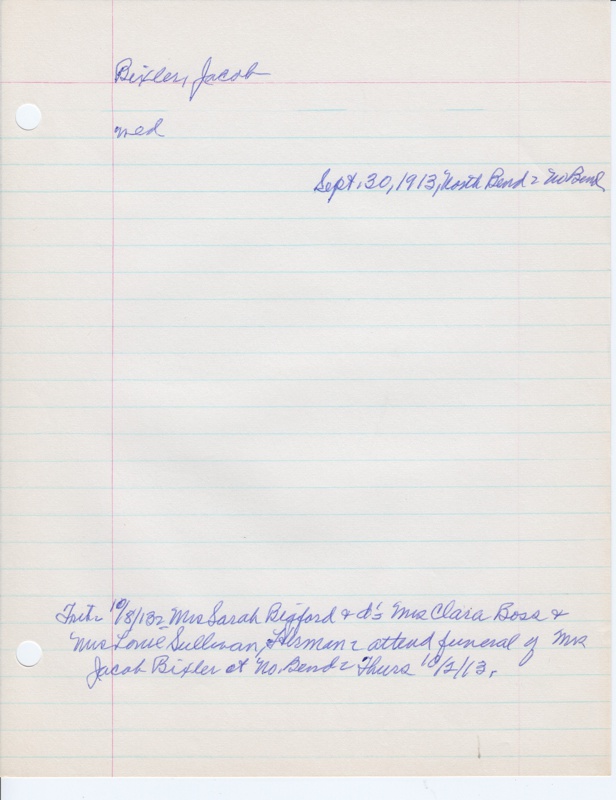 Bixler, Jacob
med
Sept. 30, 1913, North Bend = No Bend
10/8/13 = Mrs Sarah Bigford & d's Mrs Clara Boss &
Mrs Lonie Sullivan, Herman = attend funeral of Mrs
Jacob Bixler at No. Bend = Thurs 10/2/13.